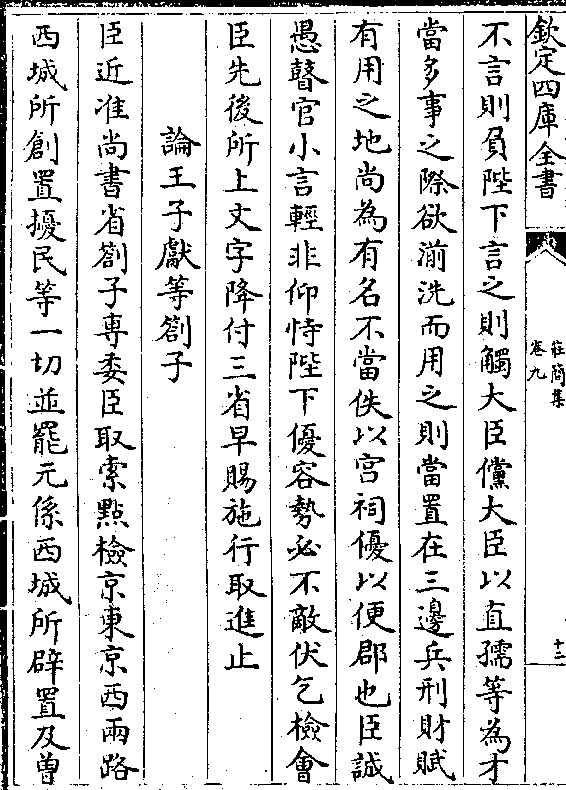 欽定四庫全書
莊簡集
卷九
十二
不言則負陛下言之則觸大臣儻大臣以直孺等為才
當多事之際欲湔洗而用之則當置在三邊兵刑財賦
有用之地尚為有名不當佚以宫祠優以便郡也臣誠
愚瞽官小言輕非仰恃陛下優容勢必不敵伏乞檢會
臣先後所上文字降付三省早賜施行取進止
論王子獻等劄子
臣近准尚書省劄子専委臣取索點檢京東京西兩路
西城所創置擾民等一切並罷元係西城所辟置及曽